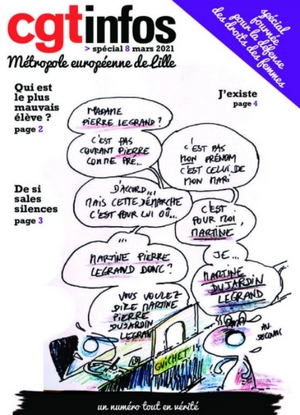 cgtinfos
> spécial 8 mars 2021
Métropole européenne de Lille
spécial
journée
pour la défense
des droits des femmes
Qui est
le plus
mauvais
élève ?
page 2
J'existe
page 4
De si
sales
silences
page 3
MADAME
PIERRE LEGRAND ?
C'EST PAS
MON PRÉNOM
C'EST CELUI DE
MON MARI
C'EST PAS
COURANT PIERRE
COMME PRÉ...
D'ACCORD...
MAIS CETTE DÉMARCHE
C'EST POUR LUI OÙ...
C'EST
POUR MOI,
MARTINE
MARTINE PIERRE
LEGRAND DONC ?
JE...
MARTINE
DUJARDIN
LEGRAND
VOUS VOULEZ
DIRE MARTINE
PIERRE
DUJARDIN
LEGRAN
GUICHET
AU
SECOURS
un numéro tout en vérité